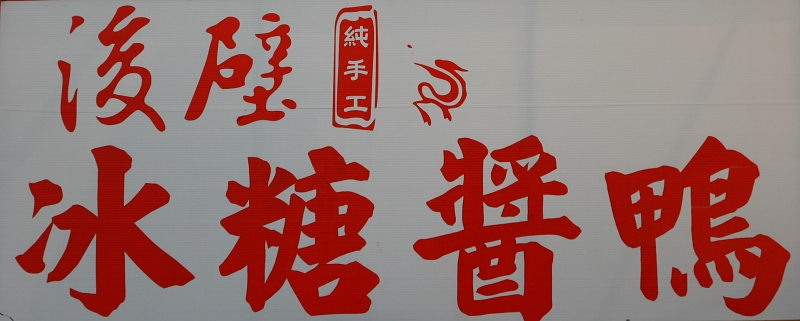 後壁 純手工
冰糖醬鴨